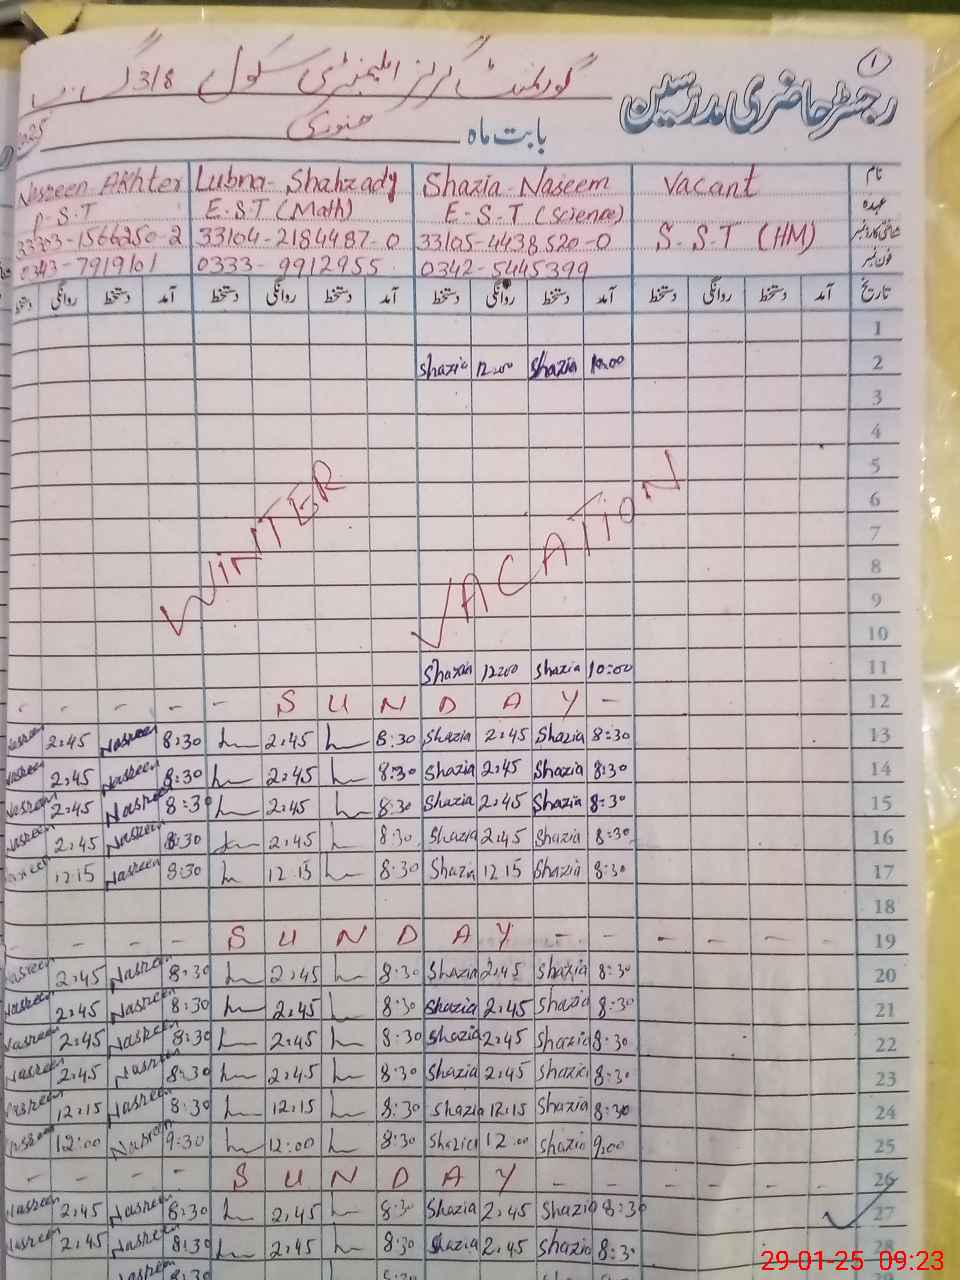 1
رجسٹر حاضری مدرسین
گورنمنٹ گرلز ایلیمنٹری سکول 318 گ ب
بابت ماہ جنوری 2025
نام Vacant Shazia-Naseem Lubna-Shahzady Nasreen-Akhter
عہدہ E-S-T (Science) E.S.T (Math) P-S-T
شناختی کارڈ نمبر S-S-T (HM) 33105-4438520-0 33104-2184487-0 33303-1566250-2
فون نمبر 0342-5445399 0333-9912955 0343-7919101
تاریخ آمد دستخط روانگی دستخط آمد دستخط روانگی دستخط آمد دستخط روانگی دستخط آمد دستخط روانگی دستخط
1
2 10:00 Shazia 12:00 Shazia
3
4
5
6
7
8
9
10
WINTER VACATION
11 10:00 Shazia 12:00 Shazia
12 SUNDAY
13 8:30 Shazia 2:45 Shazia 8:30 2:45 8:30 Nasreen 2:45 Nasreen
14 8:30 Shazia 2:45 Shazia 8:30 2:45 8:30 Nasreen 2:45 Nasreen
15 8:30 Shazia 2:45 Shazia 8:30 2:45 8:30 Nasreen 2:45 Nasreen
16 8:30 Shazia 2:45 Shazia 8:30 2:45 8:30 Nasreen 2:45 Nasreen
17 8:30 Shazia 12:15 Shazia 8:30 12:15 8:30 Nasreen 12:15
18
19 SUNDAY
20 8:30 Shazia 2:45 Shazia 8:30 2:45 8:30 Nasreen 2:45 Nasreen
21 8:30 Shazia 2:45 Shazia 8:30 2:45 8:30 Nasreen 2:45 Nasreen
22 8:30 Shazia 2:45 Shazia 8:30 2:45 8:30 Nasreen 2:45 Nasreen
23 8:30 Shazia 2:45 Shazia 8:30 2:45 8:30 Nasreen 2:45 Nasreen
24 8:30 Shazia 12:15 Shazia 8:30 12:15 8:30 Nasreen 12:15 Nasreen
25 9:00 Shazia 12:00 Shazia 8:30 12:00 9:30 Nasreen 12:00
26 SUNDAY
27 8:30 Shazia 2:45 Shazia 8:30 2:45 8:30 Nasreen 2:45 Nasreen
28 8:30 Shazia 2:45 Shazia 8:30 2:45 8:30 Nasreen 2:45 Nasreen
29-01-25 09:23